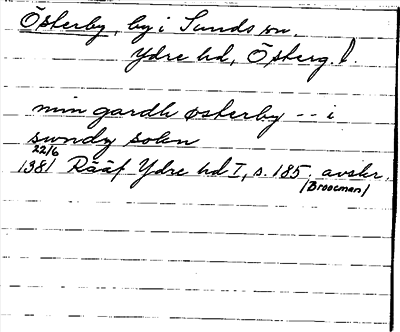 Österby, by i Sunds sn.
Ydre hd, Österg. l.
min gardh østerby -- i
sundz sokn
22/6
1381 Rääf Ydre hd I, s. 185. avskr.
(Broocman)